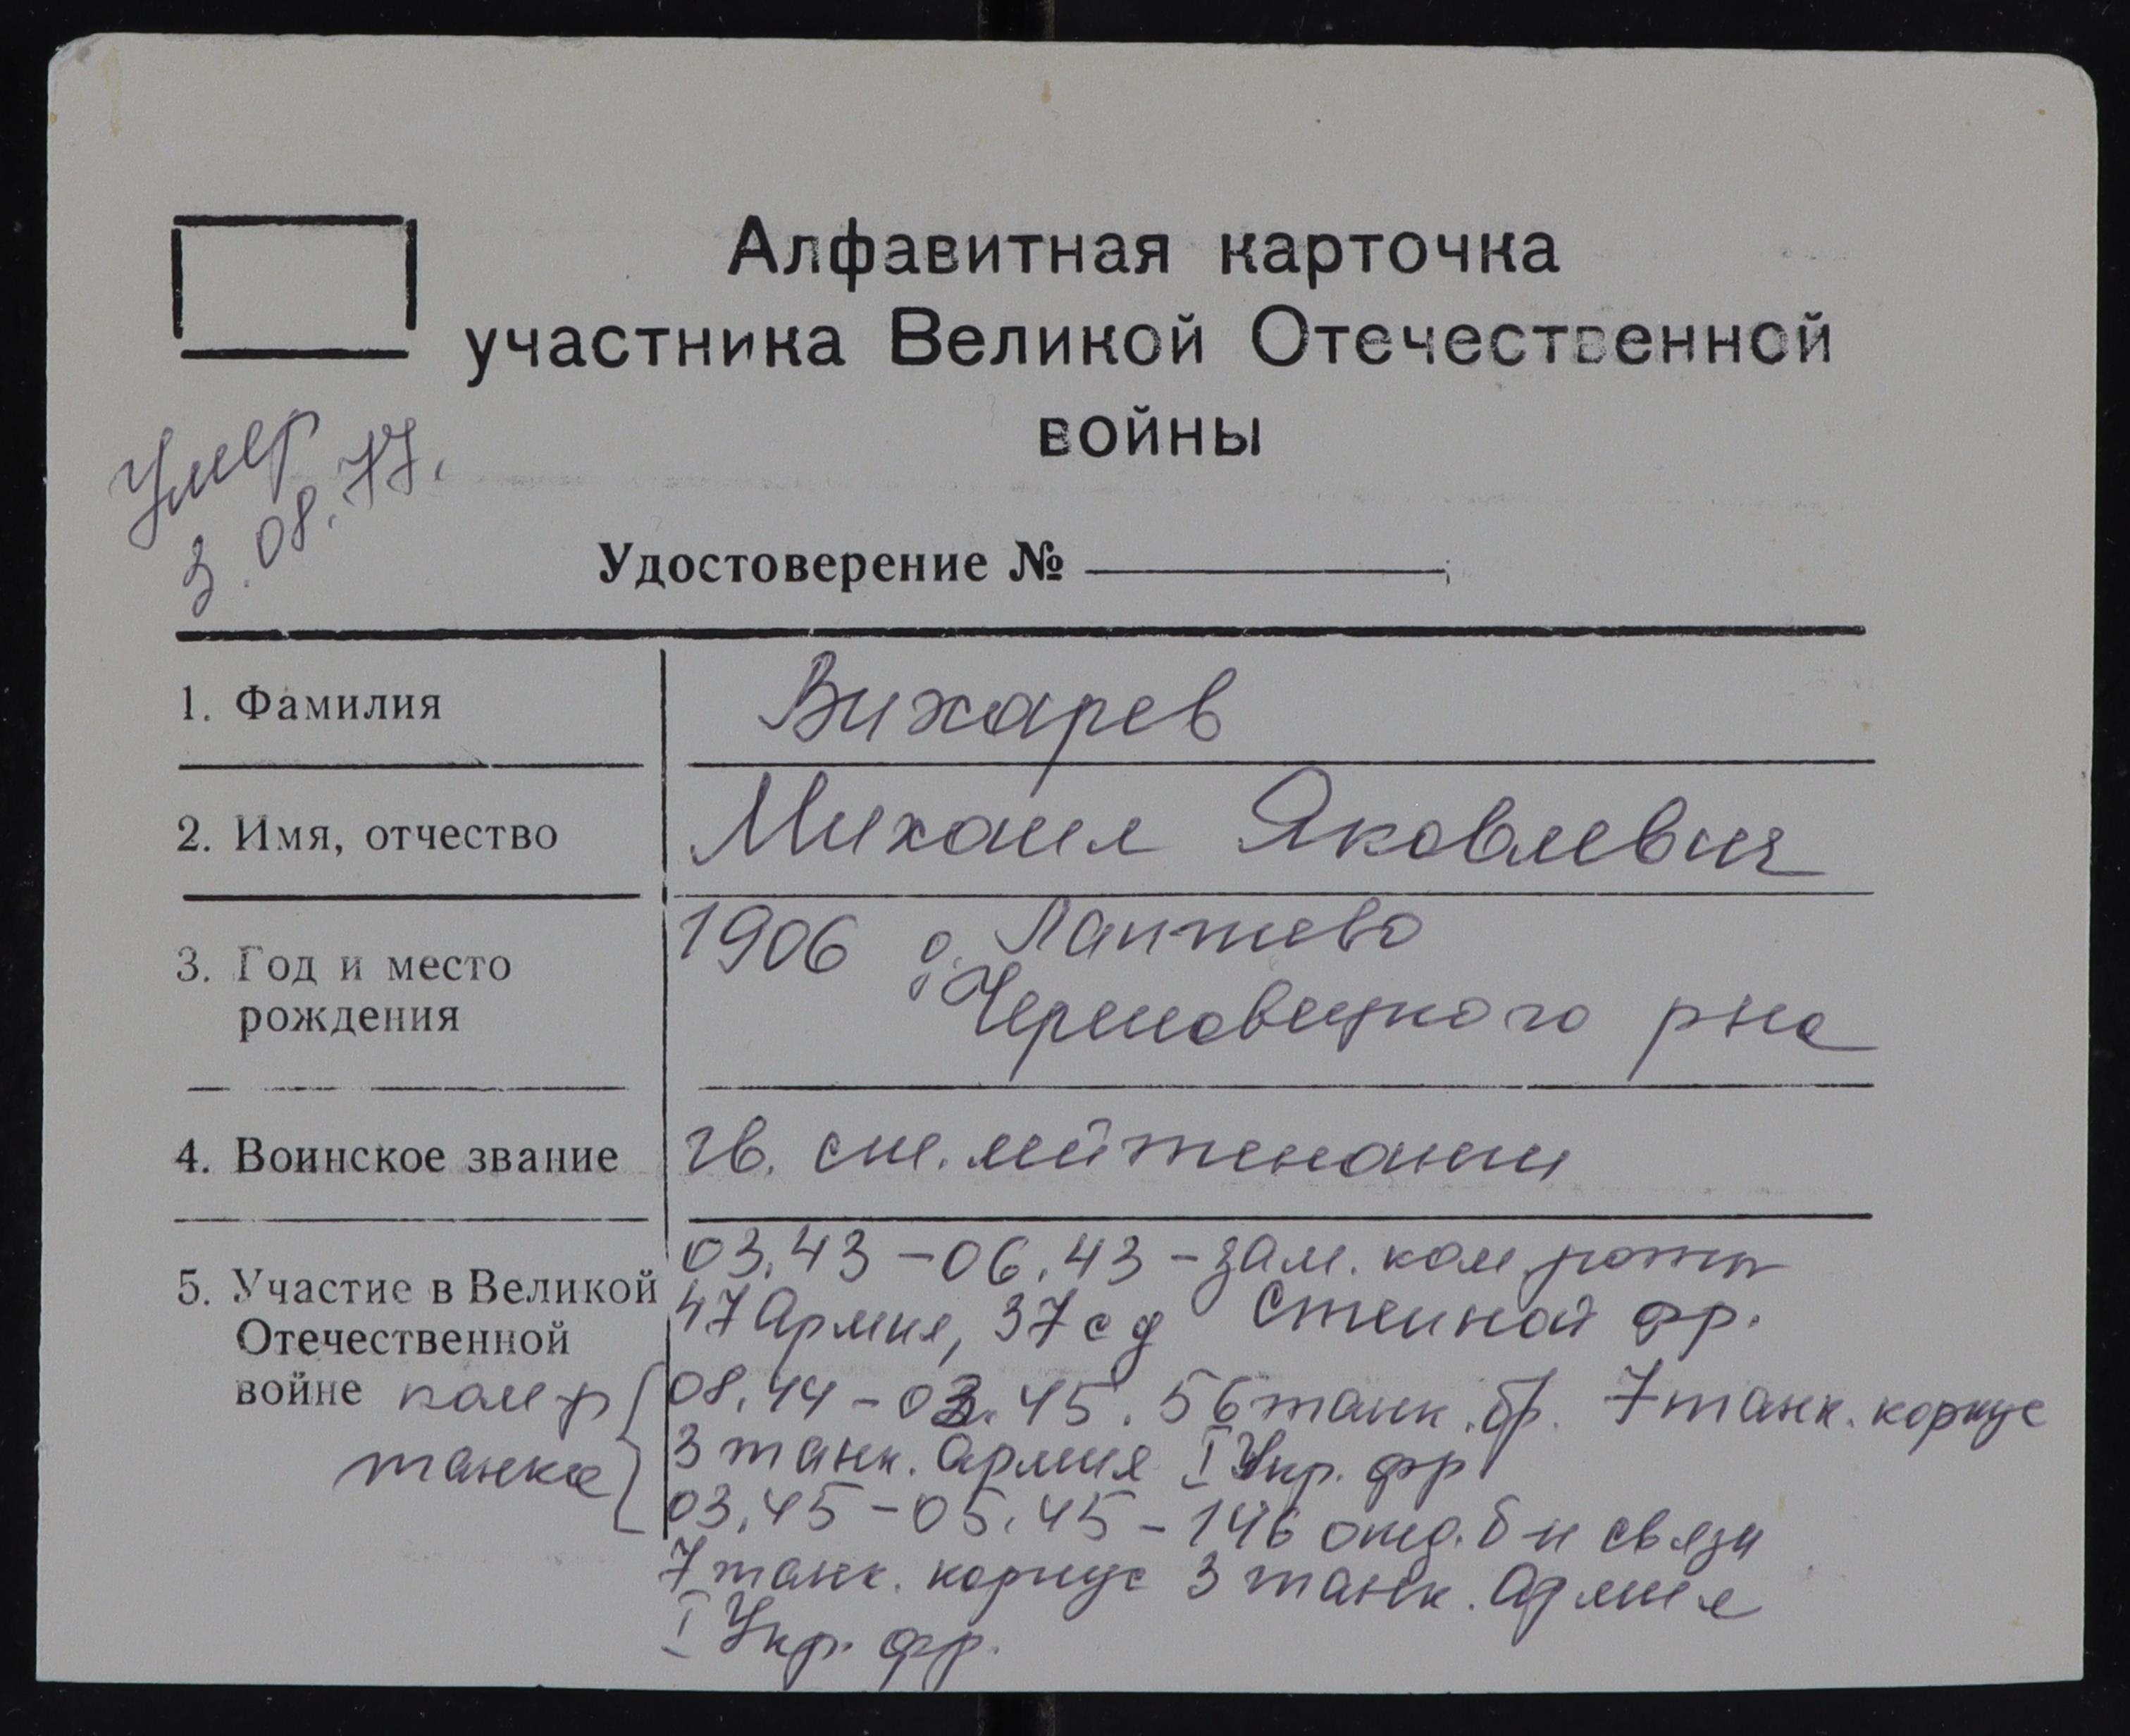 Алфавитная карточка
участника Великой Отечественной
войны
Умер
3.08.77.
Удостоверение №
1. Фамилия
Вихарев
2. Имя, отчество
Михаил Яковлевич
3. Год и место
рождения
1906 д. Лаптево
Череповецкого р-на
4. Воинское звание
гв. ст. лейтенант
5. Участие в Великой
Отечественной
войне ком-р
танка
03.43 - 06.43 - зам. ком роты
47 Армия, 37 сд Степной фр.
08.44 - 03.45. 56 танк. бр. 7 танк. корпус
3 танк. Армия I Укр. фр
03.45 - 05.45 - 146 отд. б-н связи
7 танк. корпус 3 танк. Армия
I Укр. фр.